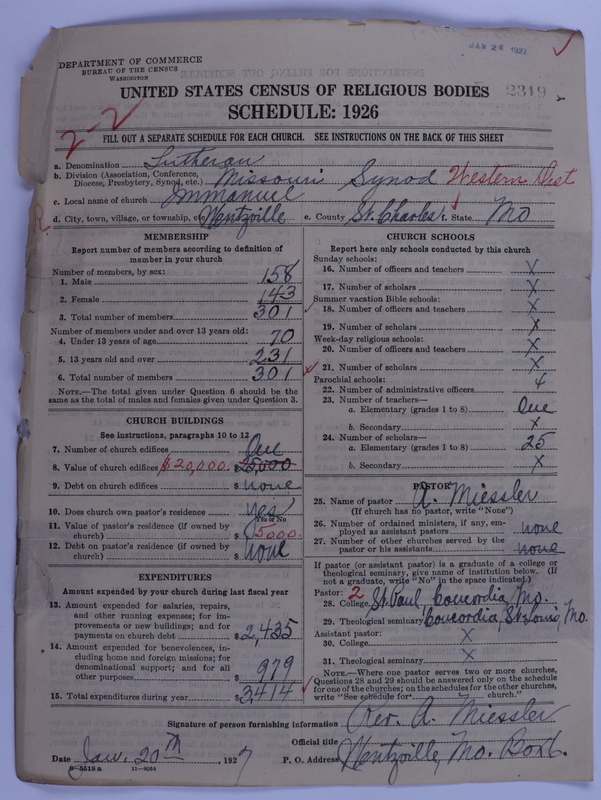 JAN 24 1927
DEPARTMENT OF COMMERCE
BUREAU OF THE CENSUS
WASHINGTON
2319
UNITED STATES CENSUS OF RELIGIOUS BODIES
SCHEDULE: 1926
2-2
FILL OUT A SEPARATE SCHEDULE FOR EACH CHURCH. SEE INSTRUCTIONS ON THE BACK OF THIS SHEET
a. Denomination Lutheran
b. Division (Association, Conference, Diocese, Presbytery, Synod, etc.) Missouri Synod Western Dist
c. Local name of church Immanuel
d. City, town, village, or township, etc. Wentzville e. County St. Charles f. State Mo
MEMBERSHIP
Report number of members according to definition of
member in your church
Number of members, by sex:
1. Male 158
2. Female 143
3. Total number of members 301
Number of members under and over 13 years old:
4. Under 13 years of age 70
5. 13 years old and over 231
6. Total number of members 301
NOTE.—The total given under Question 6 should be
same as the total of males and females given under Question 3.
CHURCH BUILDINGS
See instructions, paragraphs 10 to 12
7. Number of church edifices One
8. Value of church edifices $20,000. $ 25000
9. Debt on church edifices $ none
10. Does church own pastor's residence yes
Yes or No
11. Value of pastor's residence (if owned by
church) $ 5000.
12. Debt on pastor's residence (if owned by
church) $ none
EXPENDITURES
Amount expended by your church during last fiscal year
13. Amount expended for salaries, repairs,
and other running expenses; for im-
provements or new buildings; and for
payments on church debt $ 2,435
14. Amount expended for benevolences, in-
cluding home and foreign missions; for
denominational support; and for all
other purposes $ 979
15. Total expenditures during year $ 3,414
CHURCH SCHOOLS
Report here only schools conducted by this church
Sunday schools:
16. Number of officers and teachers X
17. Number of scholars X
Summer vacation Bible schools:
18. Number of officers and teachers X
19. Number of scholars X
Week-day religious schools:
20. Number of officers and teachers X
21. Number of scholars X
Parochial schools:
22. Number of administrative officers
23. Number of teachers—
a. Elementary (grades 1 to 8) One
b. Secondary X
24. Number of scholars—
a. Elementary (grades 1 to 8) 25
b. Secondary X
PASTOR
25. Name of pastor A. Miessler
(If church has no pastor, write "None")
26. Number of ordained ministers, if any, em-
ployed as assistant pastors none
27. Number of other churches served by the
pastor or his assistants none
If pastor (or assistant pastor) is a graduate of a college or
theological seminary, give name of institution below. (If
not a graduate, write "No" in the space indicated.)
Pastor: 2
28. College St. Paul, Concordia, Mo.
29. Theological seminary Concordia, St. Louis, Mo.
Assistant pastor:
30. College X
31. Theological seminary X
NOTE.—Where one pastor serves two or more churches,
Questions 28 and 29 should be answered only on the schedule
for one of the churches; on the schedules for the other churches,
write "See schedule for church."
Signature of person furnishing information Rev. A. Miessler
Official title
Date Jan. 20th, 1927 P. O. Address Wentzville, Mo. Box 6.
8-5518a 11-9084